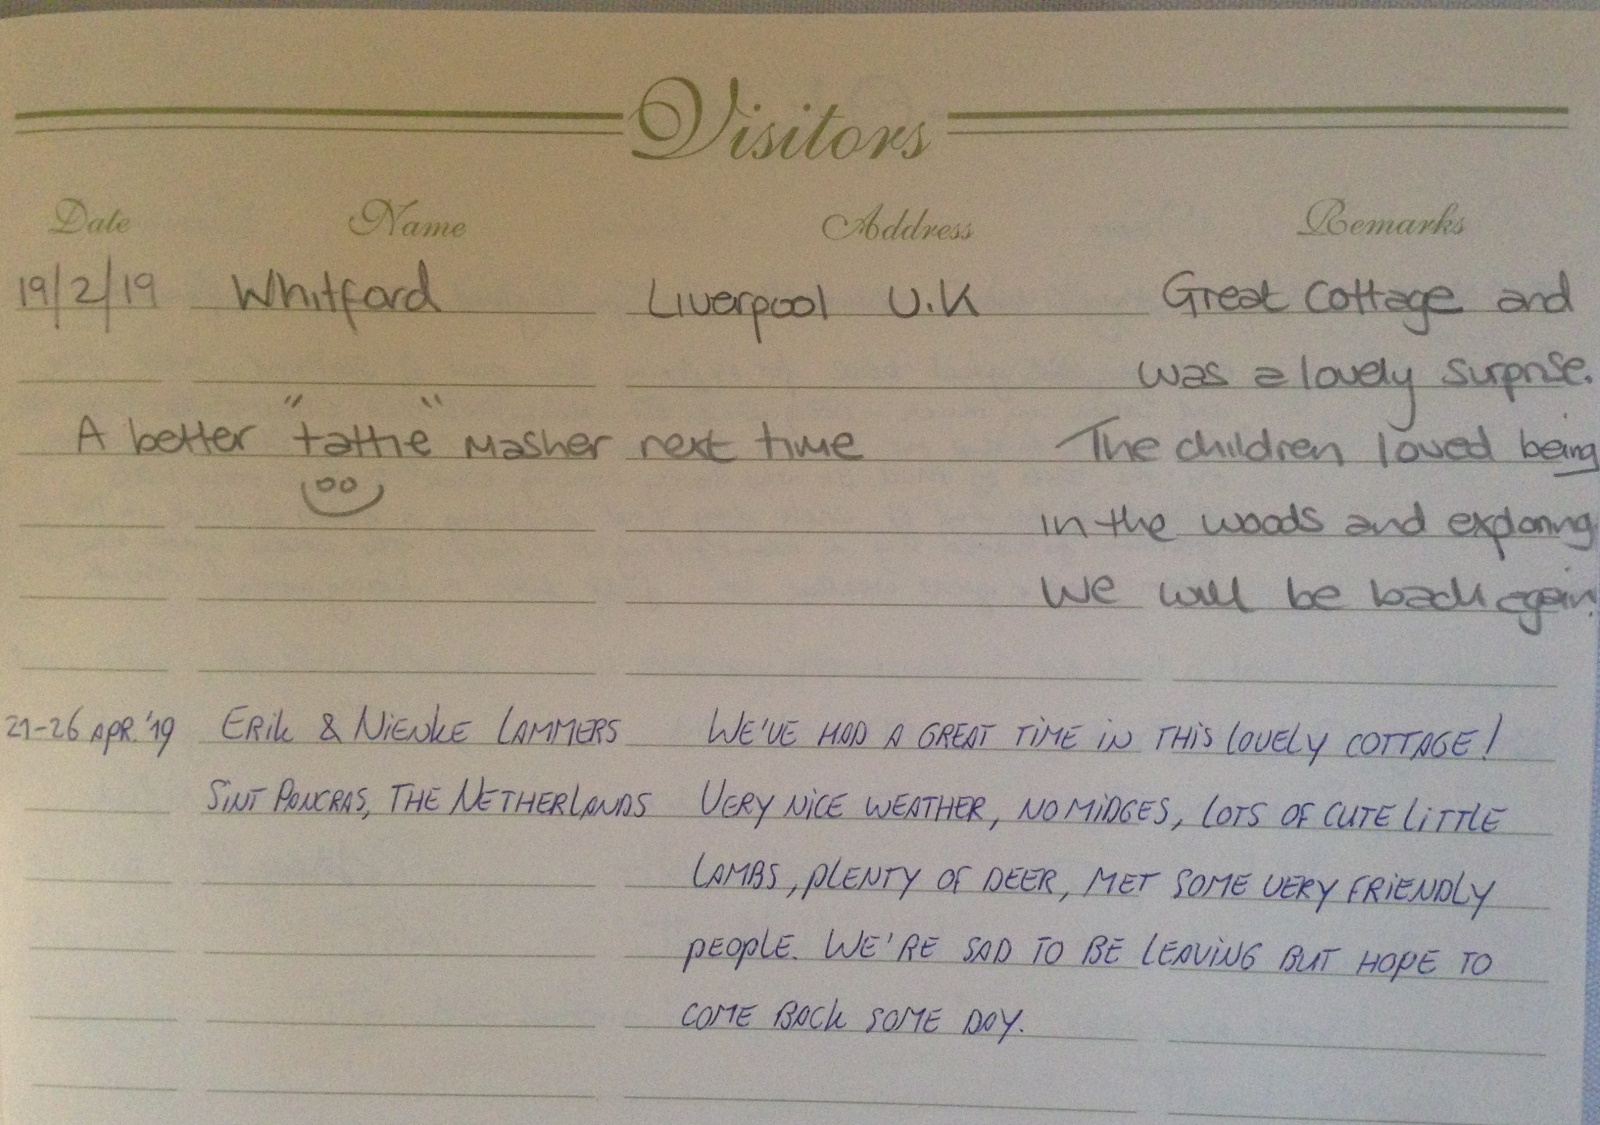 Visitors
Date Name Address Remarks
19/2/19 Whitford Liverpool U.K Great Cottage and
was a lovely surprise.
A better "tattie" masher next time The children loved being
in the woods and exploring
We will be back again.
21-26 APR. '19 ERIK & NIENKE LAMMERS WE'VE HAD A GREAT TIME IN THIS LOVELY COTTAGE!
SINT PANCRAS, THE NETHERLANDS VERY NICE WEATHER, NO MIDGES, LOTS OF CUTE LITTLE
LAMBS, PLENTY OF DEER, MET SOME VERY FRIENDLY
PEOPLE. WE'RE SAD TO BE LEAVING BUT HOPE TO
COME BACK SOME DAY.